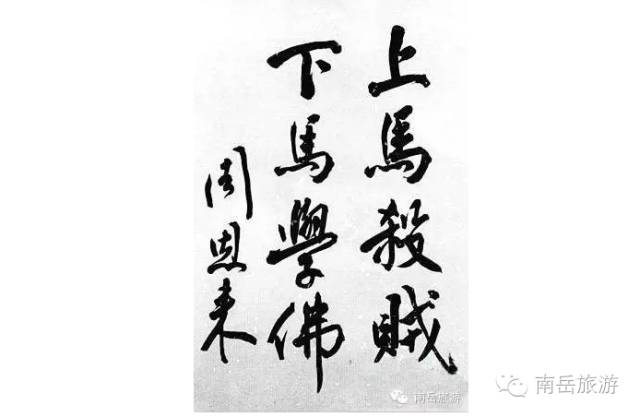 上馬殺賊
下馬學佛
周恩来
南岳旅游
南岳旅游